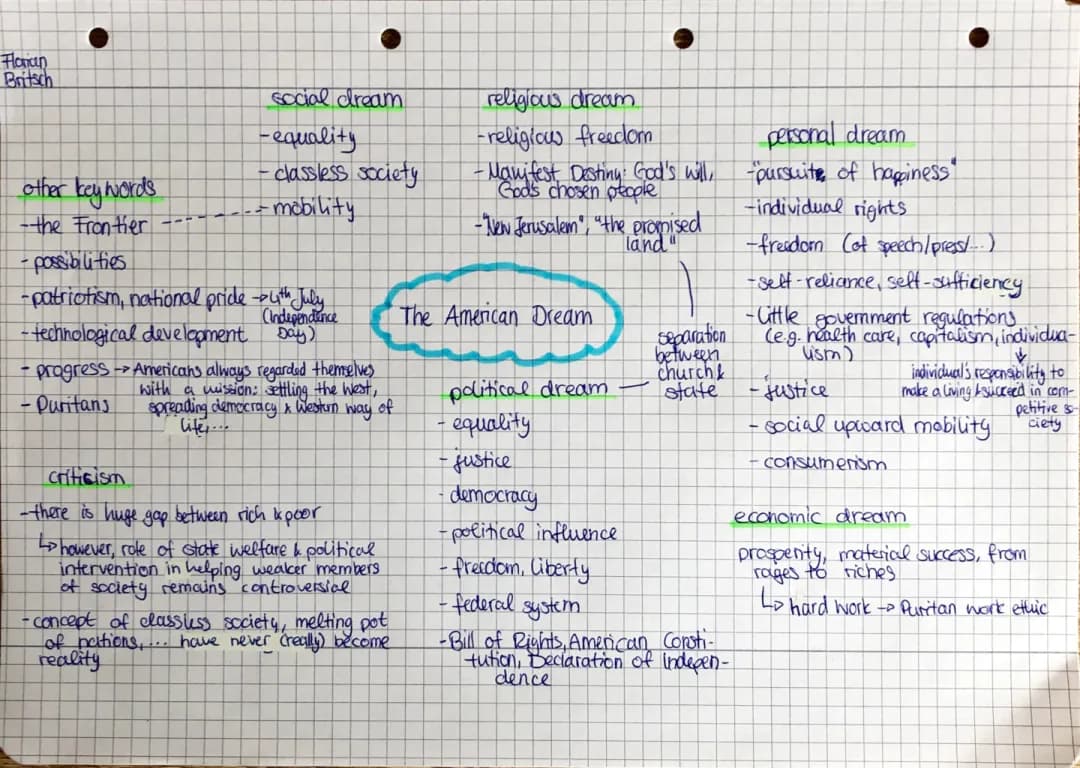 Florian
Britsch
social dream
-equality
-classless society
-mobility
religious dream
-religious freedom
-Manifest Destiny: God's will,
God's chosen ptople
-"New Jerusalem", "the promised
land"
personal dream
-"pursuite of happiness"
-individual rights
-freedom (of speech/press/...)
-self-reliance, self-sufficiency
-Little government regulations
(e.g. health care, capitalism, individua-
lism)
individual's responsibility to
make a living & succeed in com-
petitive so-
ciety
-justice
-social upward mobility
-consumerism
other key words
-the Frontier
-possibilities
-patriotism, national pride → 4th July
(Independence
Day)
-technological development
-progress → Americans always regarded themselves
with a mission: settling the West,
spreading democracy & Western way of
life,...
-Puritans
The American Dream
separation
between
church &
state
political dream
-equality
-justice
-democracy
-political influence
-freedom, liberty
-federal system
-Bill of Rights, American Consti-
tution, Declaration of Indepen-
dence
criticism
-there is huge gap between rich & poor
↳ however, role of state welfare & political
intervention in helping weaker members
of society remains controversial
-concept of classless society, melting pot
of nations,... have never (really) become
reality
economic dream
prosperity, material success, from
rages to riches
↳ hard work → Puritan work ethic